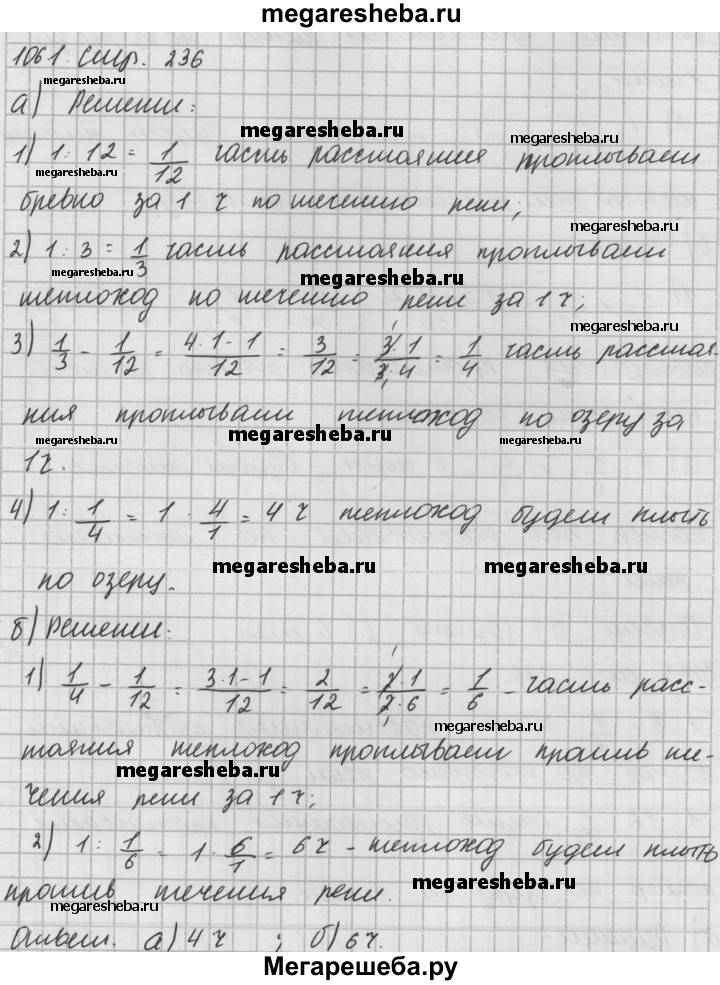 megaresheba.ru
1061. стр. 236
megaresheba.ru
а) Решение:
megaresheba.ru
megaresheba.ru
1) 1 : 12 = 1/12 часть расстояния проплывает
бревно за 1 ч по течению реки;
megaresheba.ru
2) 1 : 3 = 1/3 часть расстояния проплывает
megaresheba.ru
megaresheba.ru
теплоход по течению реки за 1 ч;
megaresheba.ru
3) 1/3 - 1/12 = 4·1-1/12 = 3/12 = 3·1/3·4 = 1/4 часть расстоя-
ния проплывает теплоход по озеру за
megaresheba.ru
megaresheba.ru
megaresheba.ru
1 ч.
4) 1 : 1/4 = 1 · 4/1 = 4 ч теплоход будет плыть
megaresheba.ru
megaresheba.ru
по озеру.
б) Решение:
1) 1/4 - 1/12 = 3·1-1/12 = 2/12 = 2·1/2·6 = 1/6 - часть расс-
megaresheba.ru
тояния теплоход проплывает против те-
megaresheba.ru
чения реки за 1 ч;
2) 1 : 1/6 = 1 · 6/1 = 6 ч - теплоход будет плыть
против течения реки.
megaresheba.ru
megaresheba.ru
Ответ. а) 4 ч ; б) 6 ч.
Мегарешеба.ру